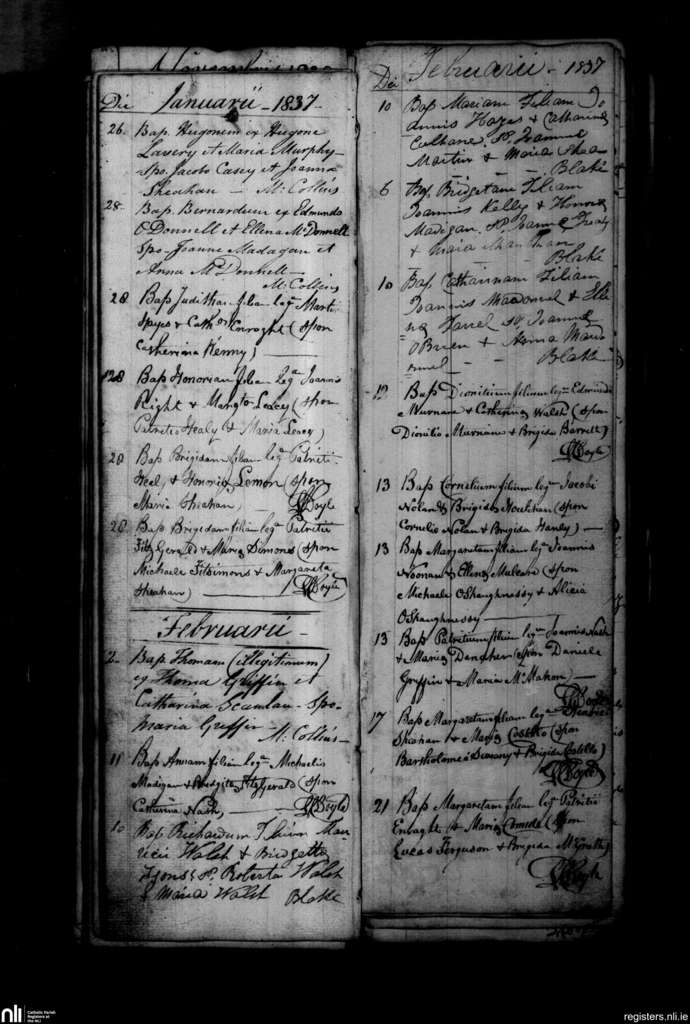 Die Januarii - 1837 -
26 Bap. Hugonem ex Hugone
Lavery et Maria Murphy -
Spo. Jacobo Casey et Joanna
Sheahan - M: Collins
28 Bap. Bernardum ex Edmundo
O'Donnell et Ellena McDonnell
Spo - Joanne Madagan et
Anna McDonnell -
M: Collins
28 Bap Juditham filiam legm Marti
& Cath (spon
Catherina Kenny)
28 Bap Honoriam filiam legm Joannis
Right & Margto Leacy (spon
Patritio Healy & Maria Leacy)
28 Bap Brigidam filiam legm Patritii
Neel, & Honoria Lemon (spon
Maria Sheahan Doyle
28 Bap Brigidam filiam legm Patritii
FitzGerald & Maria Simons (spon
Michaele Fitsimons & Margareta
Sheahan) Doyle
Februarii -
2 Bap Thomam (illegitimum)
ex Thoma Griffin et
Catharina Scanlan - Spo -
Maria Griffin - M: Collins -
11 Bap Annam filiam legm Michaelis
Madigan & Bridgita FitzGerald (spon
Catherina Nash) Doyle
10 Bap Richardum Filium Mau
ricii Walsh & Bridgette
Lyons; sp. Roberto Walsh
& Maria Walsh Blake
Die Februarii - 1837
10 Bap Mariam Filiam Jo
annis Hayes & Catharina
Culhane, sp. Joanne
Martin & Maria Shea
Blake
6 Bap Bridgetam Filiam
Joannis Kelly & Honora
Madigan, sp. Joanne Treaty
& Maria
Blake
10 Bap Catharinam Filiam
Joannis Macdonnel & Elle
na Farrel sp Joanne
O'Brien & Anna Macdo
nnel - - Blake
12 Bap Dionitium filium legm Edmundi
Murnane & Catherina Walsh (spon
Dionitio Murnane & Brigida Barrett)
Doyle
13 Bap Cornelium filium legm Jacobi
Noland & Brigida Houlihan (spon
Cornelio Nolan & Brigida Hanly)
13 Bap Margaretam filiam legm Joannis
Noonan & Ellena Mulcare (spon
Michaele OShaughnessy & Alicia
OShaughnessy
13 Bap Patritium filium legm Joannis Nash
& Maria Danaher (spon Daniele
Griffin & Maria McMahon)
Doyle
17 Bap Margaretam filiam legm Patritii
Sheahan & Maria Costello (spon
Bartholomeo & Brigida Costello)
Doyle
21 Bap Margaretam filiam legm Patritii
Enraght & Maria (spon
Lucas Ferguson & Brigida McGrath)
Doyle
nli
Catholic Parish
Registers at
the NLI
registers.nli.ie